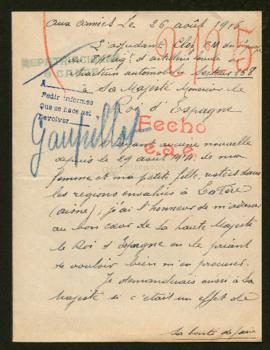 aux armées le 26 août 1916
2195
L'adjudant
REPATRIACIONES
section automobile
888
A
à Sa Majesté Monsieur le
Pedir informes
Roi d'Espagne
Que se hace
Devolver
Hecho
c.a.e
aucune nouvelle
depuis le 29 août 1914, de ma
femme et ma petite fille, restées dans
les régions envahies à
(Aisne), j'ai l'honneur de
au bon cœur de la haute Majesté
le Roi d'Espagne en le priant
de vouloir bien m'en procurer.
Je demanderais aussi à la
Majesté si c'était un effet de
sa bonté de faire